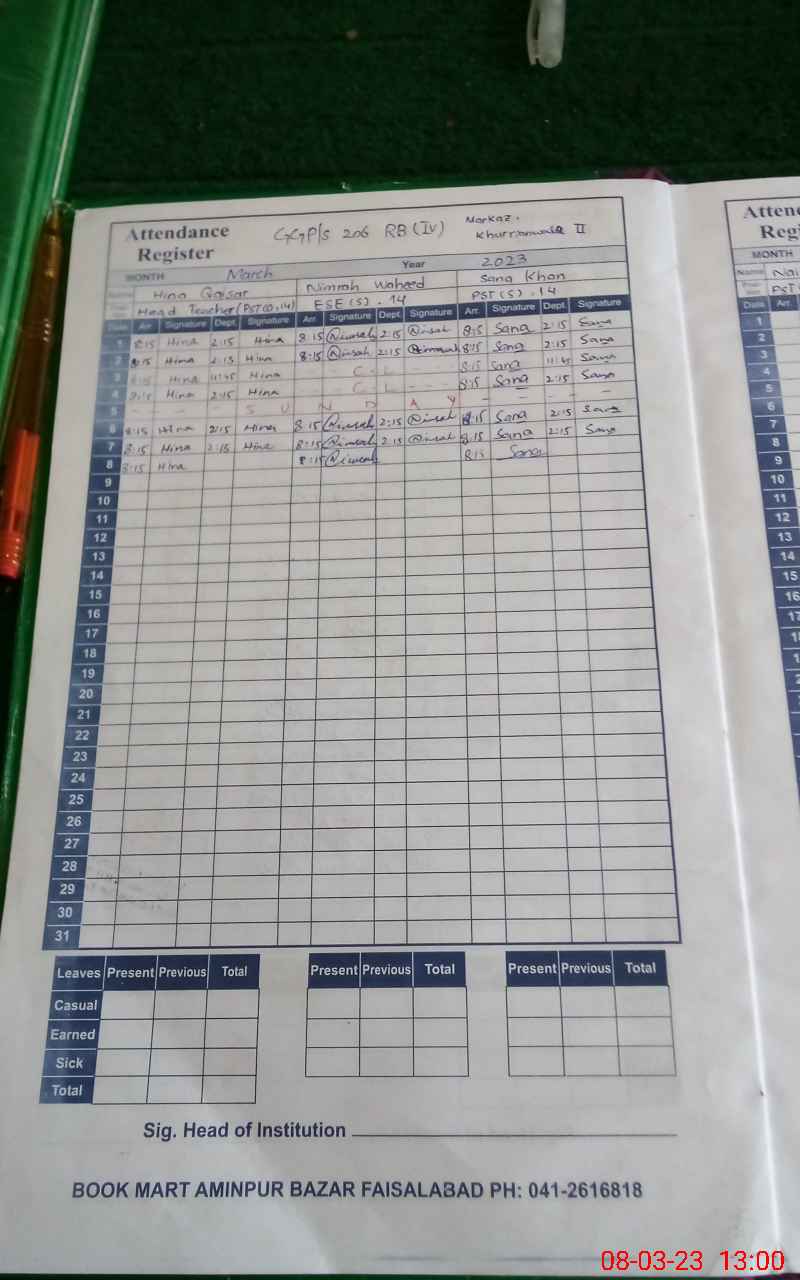 Attendance Register
GGP/s 206 RB (IV)
Markaz.
Khurrianwala II
MONTH March Year 2023
Name Hina Qaisar Nimrah Waheed Sana Khan
Head Teacher (PST ESE (S). 14 PST (S). 14
Date Arr. Signature Dept. Signature Arr. Signature Dept. Signature Arr. Signature Dept. Signature
1 8:15 Hina 2:15 Hina 8:15 2:15 8:15 Sana 2:15 Sana
2 8:15 Hina 2:15 Hina 8:15 2:15 8:15 Sana 2:15 Sana
3 8:15 Hina 11:45 Hina - - C - L - - 8:15 Sana 11:45 Sana
4 8:15 Hina 2:15 Hina - - C - L - - 8:15 Sana 2:15 Sana
5 - - - S U N D A Y - - - -
6 8:15 Hina 2:15 Hina 8:15 2:15 8:15 Sana 2:15 Sana
7 8:15 Hina 2:15 Hina 8:15 2:15 8:15 Sana 2:15 Sana
8 8:15 Hina 8:15 8:15 Sana
9
10
11
12
13
14
15
16
17
18
19
20
21
22
23
24
25
26
27
28
29
30
31
Leaves Present Previous Total Present Previous Total Present Previous Total
Casual
Earned
Sick
Total
Sig. Head of Institution
BOOK MART AMINPUR BAZAR FAISALABAD PH: 041-2616818
MONTH
Name
Date Arr.
1
2
3
4
5
6
7
8
9
10
11
12
13
14
15
16
08-03-23 13:00